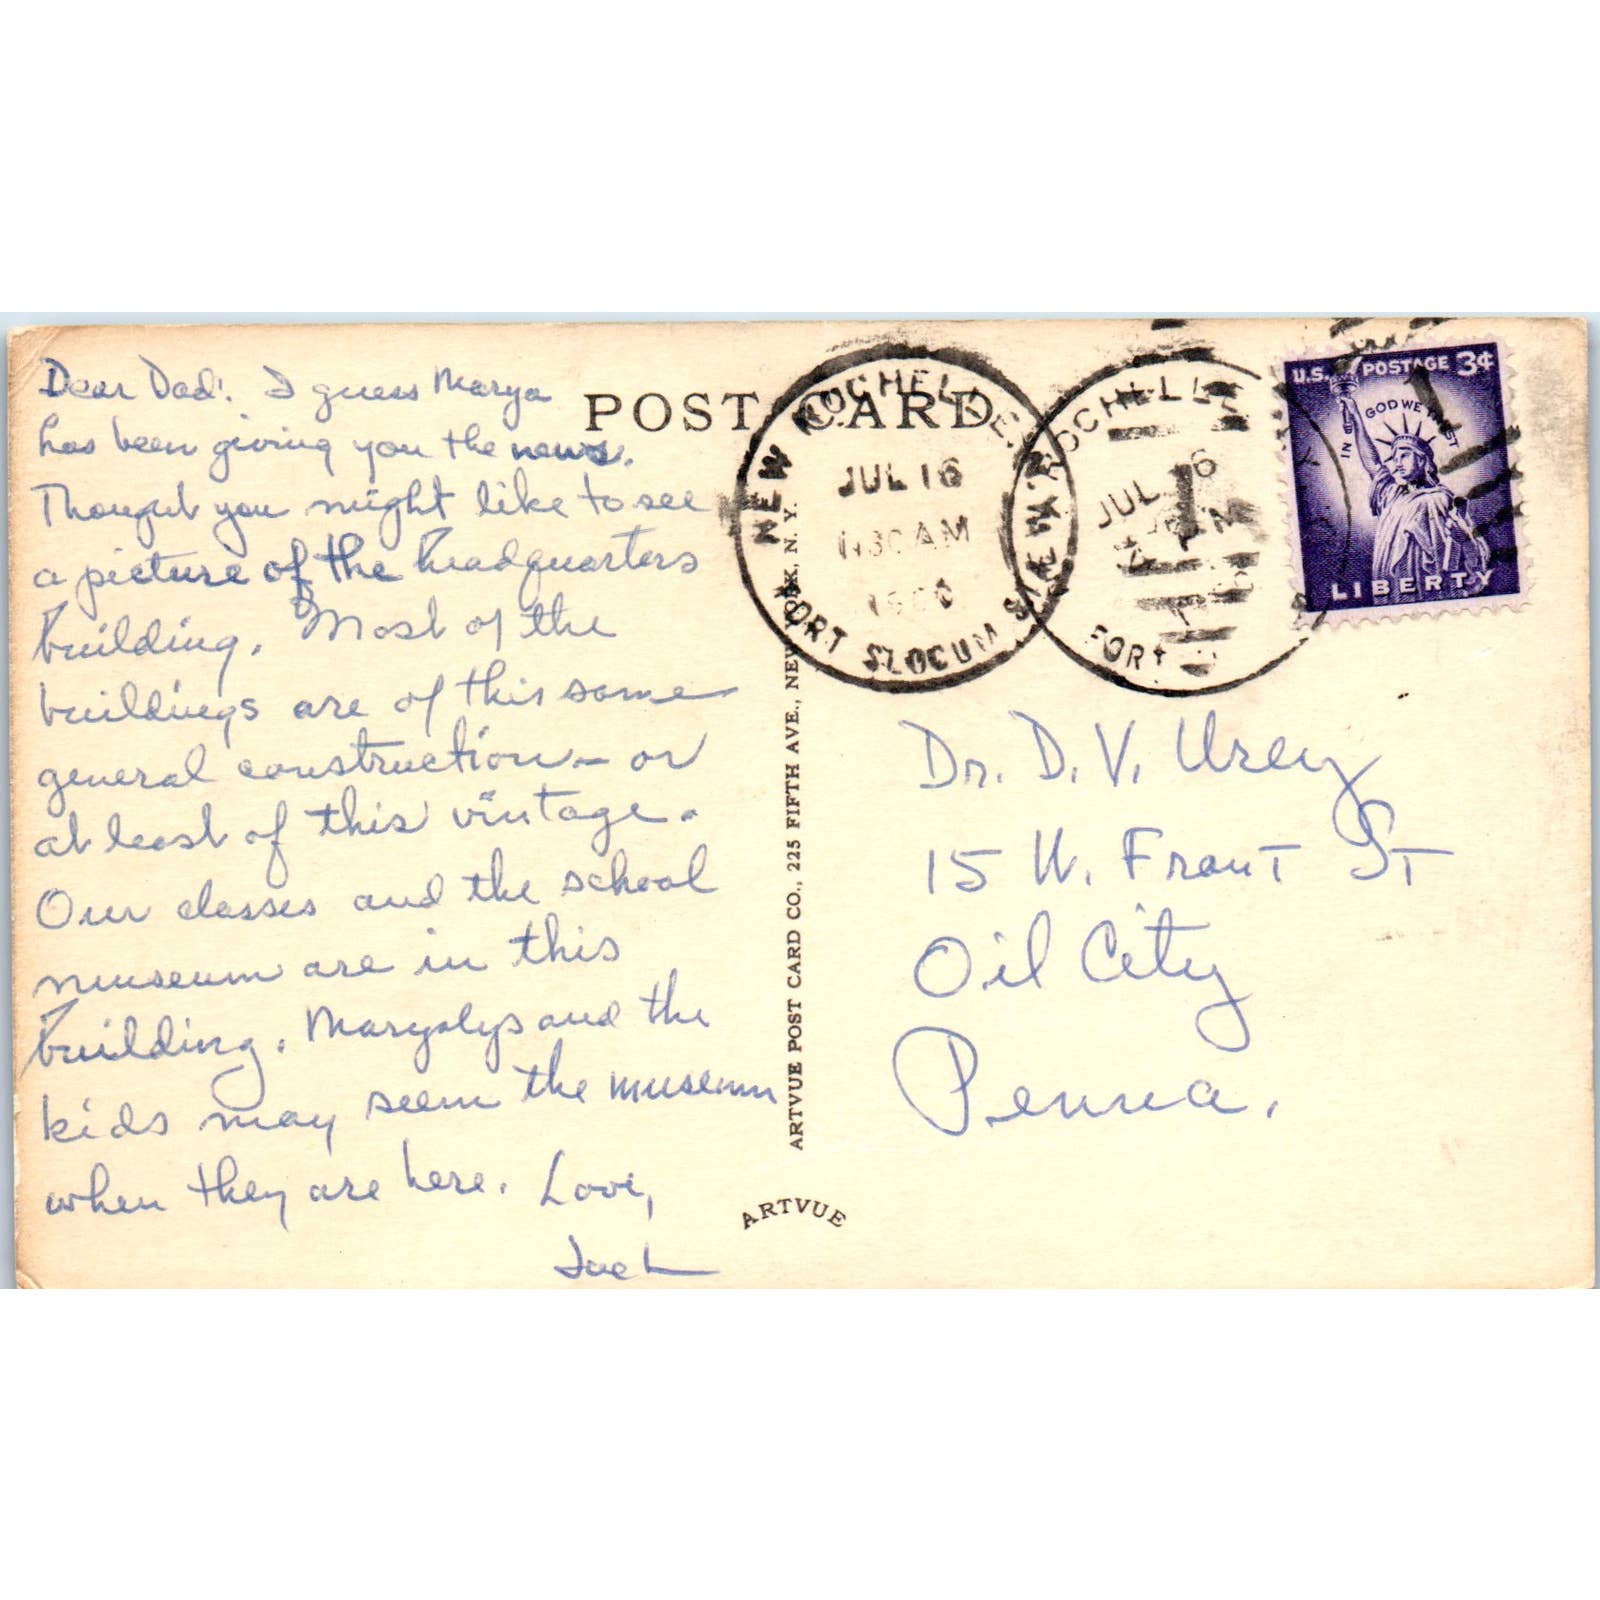 Dear Dad! I guess Marya
has been giving you the news.
Thought you might like to see
a picture of the headquarters
building. Most of the
buildings are of this same
general construction - or
at least of this vintage.
Our classes and the school
museum are in this
building. Maryalys and the
kids may seem the museum
when they are here. Love,
Jack
POST CARD
NEW ROCHELLE
JUL 16
AM
FORT SLOCUM STA
ROCHELLE
JUL 16
FORT
U.S. POSTAGE 3¢
IN GOD WE TRUST
LIBERTY
ARTVUE POST CARD CO., 225 FIFTH AVE., NEW YORK, N. Y.
ARTVUE
Dr. D. V. Urey
15 W. Front St
Oil City
Penna.